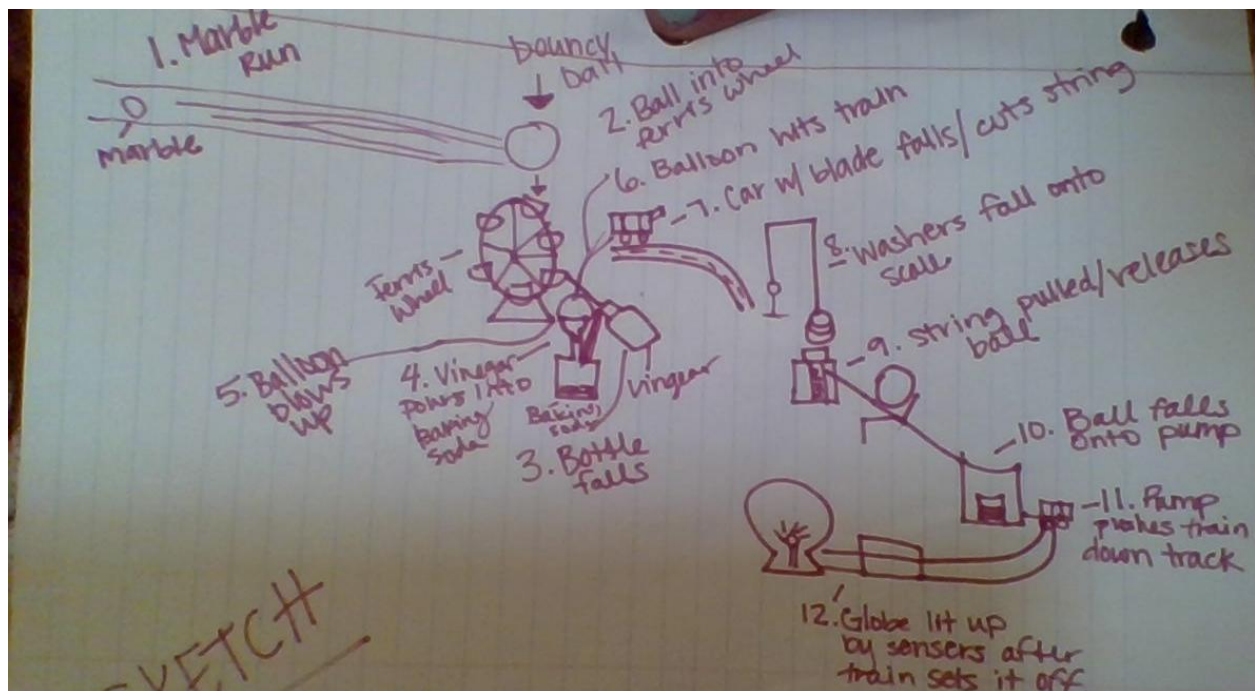 1. Marble
Run
Marble
bouncy
ball
2. Ball into
ferris wheel
6. Balloon hits train
7. Car w/ blade falls/cuts string
8. Washers fall onto
scale
9. String pulled/releases
ball
Ferris
wheel
5. Balloon
blows
up
4. Vinegar
pours into
Baking
soda
Baking
soda
Vingear
3. Bottle
falls
10. Ball falls
onto pump
11. Pump
pushes train
down track
12. Globe lit up
by sensers after
train sets it off
SKETCH